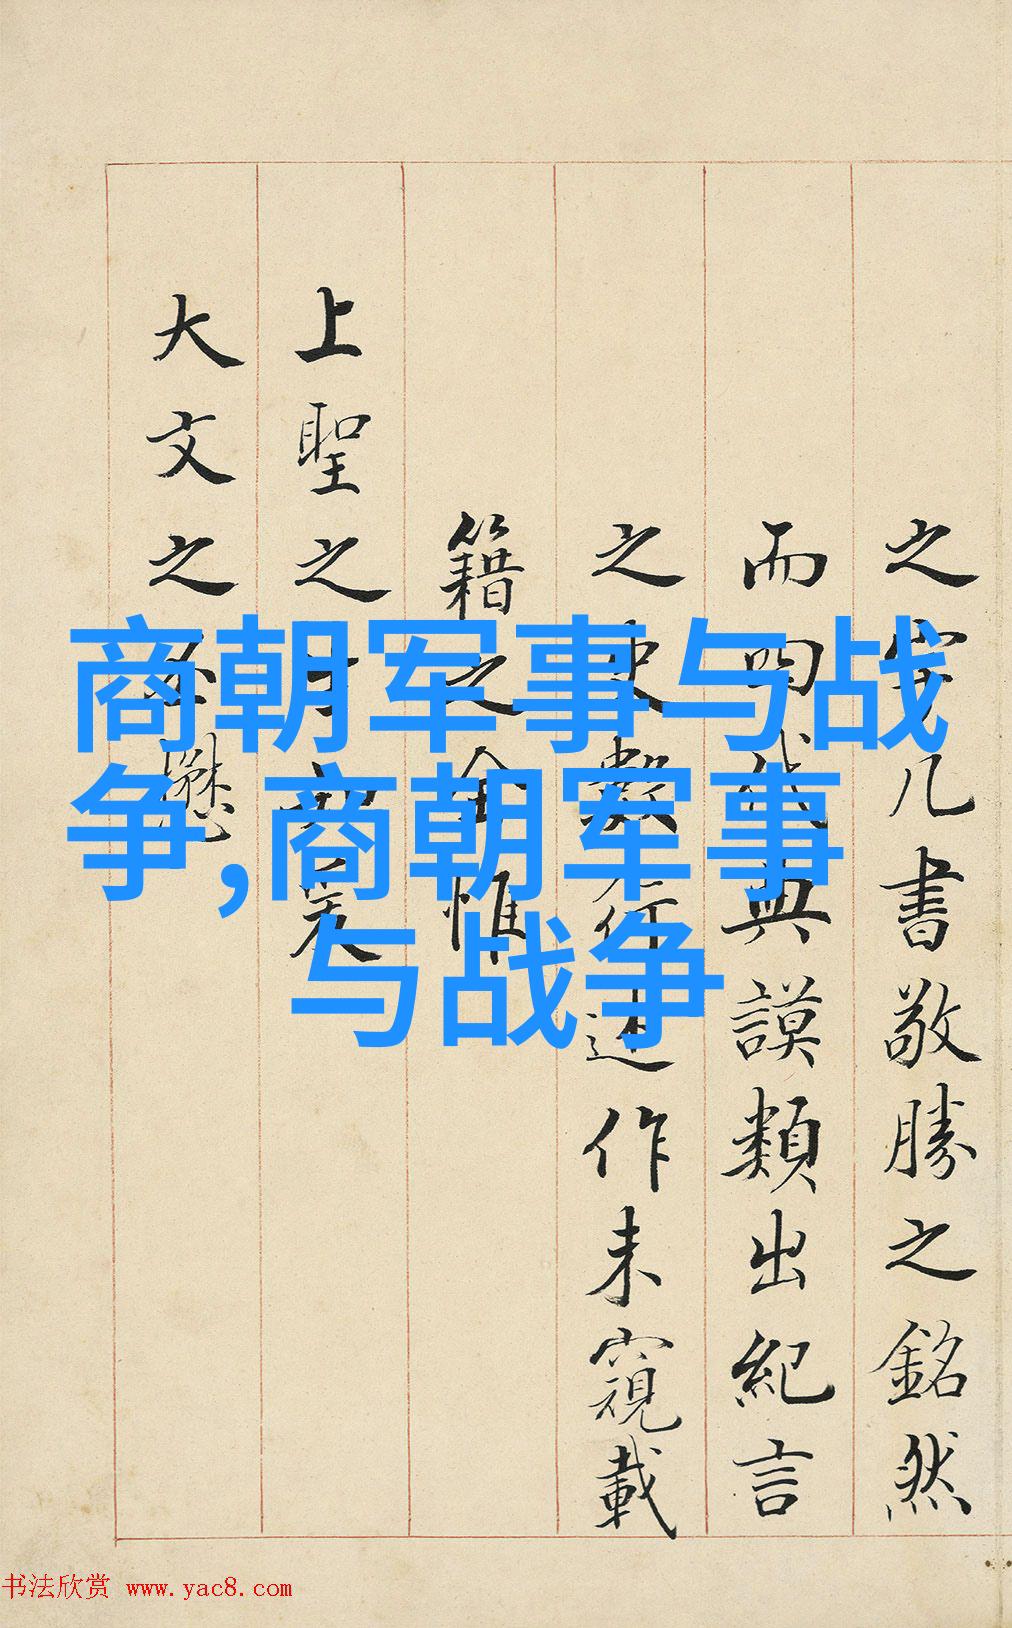 之宇几書敬勝之銘然
而四代典謨類出紀言
之史數行述作未窺載
籍之全惟
上聖之
大文之
商朝军事与战
争,商朝军事
与战争
书法欣赏 www.yac8.com